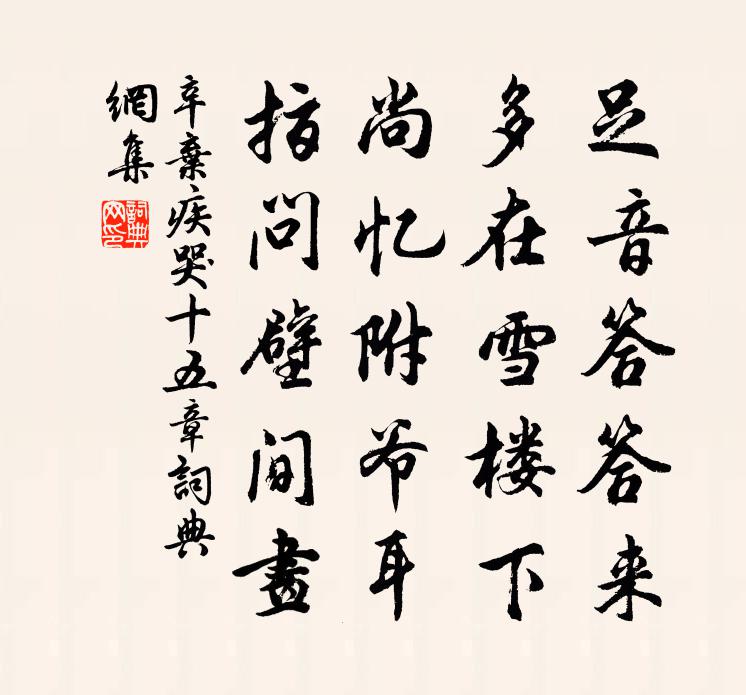 足音答答来
多在雪楼下
尚忆附爷耳
指问壁间畫
辛棄疾哭十五章詞典
網集
詞典
网印